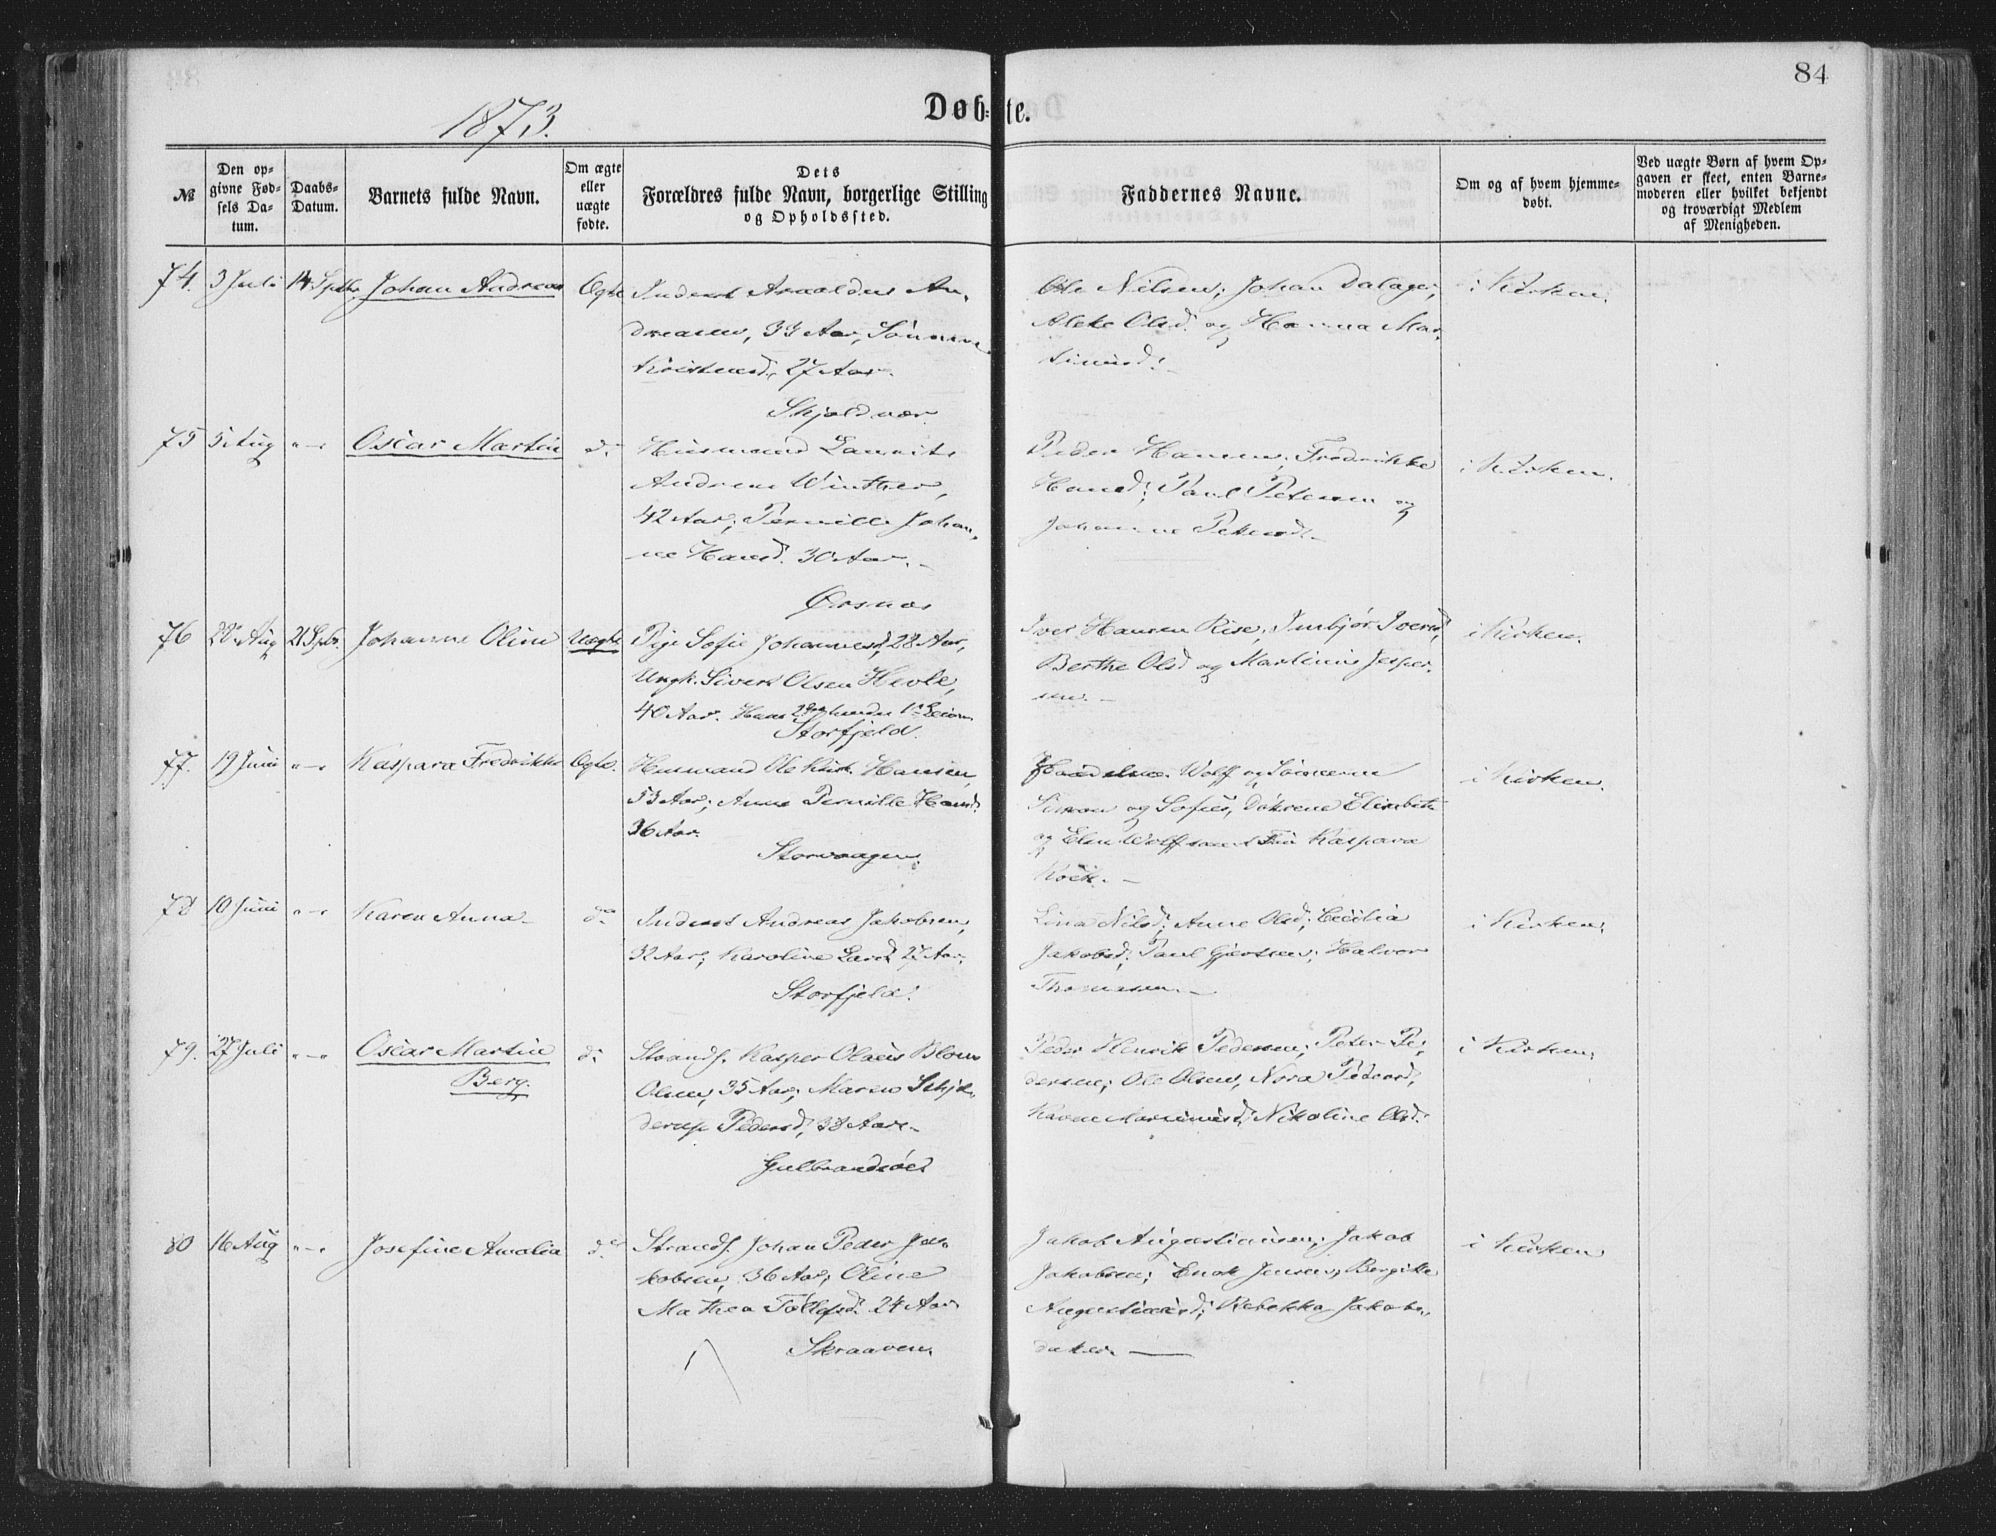 84
1873.
Døb=te.
№
Den opgivne Fødsels Datum.
Daabs-Datum.
Barnets fulde Navn.
Om ægte eller uægte fødte.
Dets Forældres fulde Navn, borgerlige Stilling og Opholdssted.
Faddernes Navne.
Om og af hvem hjemmedøbt.
Ved uægte Børn af hvem Opgaven er skeet, enten Barnemoderen eller hvilket bekjendt og troværdigt Medlem af Menigheden.
74. 3 Juli 14 Septbr. Johan Andreas Ægte Inderst Arnoldus An-
dreasen, 33 Aar,
27 Aar.
Skjoldvær
Ole Nilsen; Johan Dalager,
Aleke Olsd. og Hanna Mar-
tinusd.
i Kirken.
75 5 Aug "–" Oscar Martin do Husmand Laurits
Andreas Winther,
42 Aar; Pernille Johan-
ne Hansd. 30 Aar.
Ørsnæs
Peder Hansen, Fredrikke
Hansd; Paul Petersen og
Johanne Petersd.
i Kirken.
76 28 Aug 21 Septbr. Johanne Oline Uægte Pige Sofie Johannesd, 28 Aar,
Ungk. Sivert Olsen Hevle,
40 Aar. Hans 2det hendes 1ste Leierm.
Storfjeld.
Iver Hansen Rise, Inbjør Iversd,
Berthe Olsd og Martinus Jesper-
sen.
i Kirken.
77. 19 Juni "–" Kaspara Fredrikke Ægte. Husmand Ole Hansen,
53 Aar; Anne Pernille Hansd.
36 Aar.
Storvaagen.
Wolff og Sønnerne
Simon og Sofus, Døtrene Elisabeth
og Elen Wolff samt Fru Kaspara
i Kirken.
78 10 Juni "–" Karen Anna do Inderst Andreas Jakobsen,
32 Aar; Karoline Larsd 27 Aar,
Storfjeld.
Lina Nilsd; Anne Olsd; Cecilia
Jakobsd; Paul Gjertsen; Halvor
Thomasen.
i Kirken.
79. 27 Juli "–" Oscar Martin do Strands. Kasper Olaus Blom
Berg.
Olsen, 35 Aar; Maren Schjel-
derup Pedersd, 38 Aar.
Gulbrandsøen
Peder Henrik Pedersen; Peter Pe-
dersen; Ole Olsen, Nora Pedersd,
Karen Martinusd; Nikoline Olsd.
i Kirken.
80 16 Aug "–" Josefine Amalia do Strands. Johan Peder Ja-
kobsen, 36 Aar; Oline
Mathea Tollefsd. 24 Aar.
Skraaven.
Jakob Augustiansen; Jakob
Jakobsen; Enok Jensen, Bergitte
Augustinusd; Rebekka Jakobs-
datter.
i Kirken